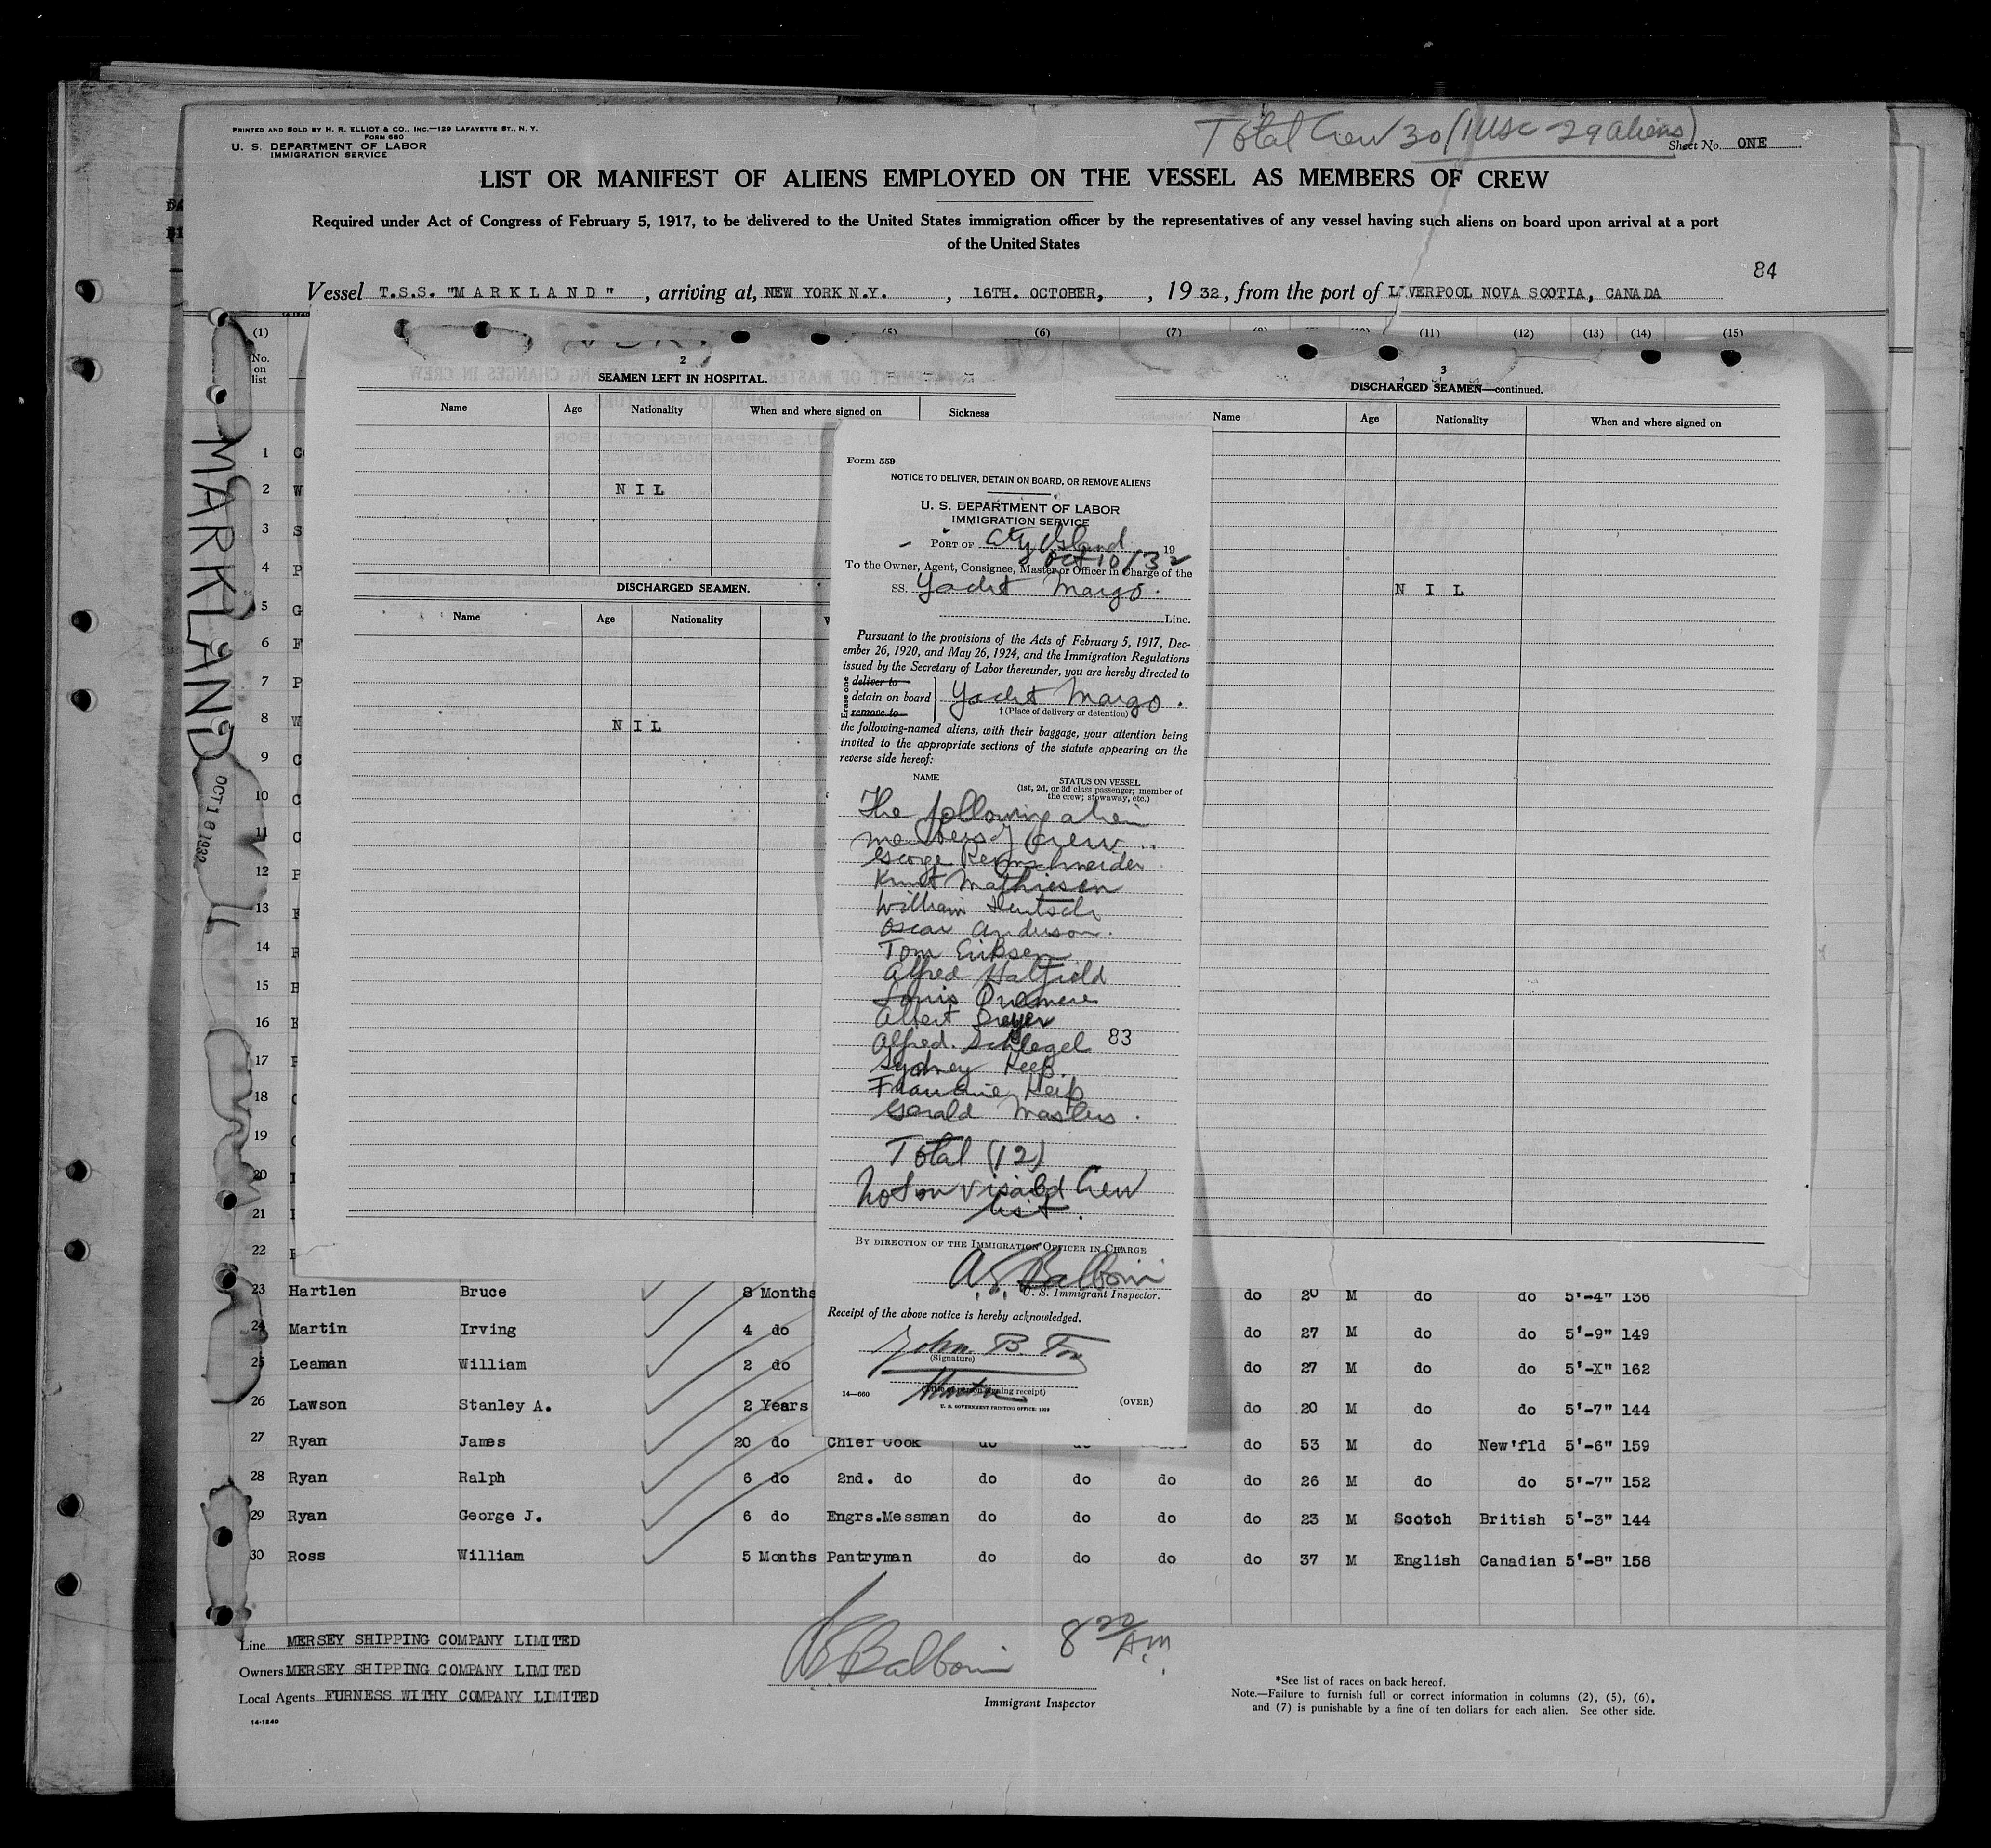 PRINTED AND SOLD BY H. R. ELLIOT & CO., INC.—129 LAFAYETTE ST., N. Y.
FORM 680
U. S. DEPARTMENT OF LABOR
IMMIGRATION SERVICE
Total Crew 30 (1 USC - 29 aliens)
Sheet No. ONE
LIST OR MANIFEST OF ALIENS EMPLOYED ON THE VESSEL AS MEMBERS OF CREW
Required under Act of Congress of February 5, 1917, to be delivered to the United States immigration officer by the representatives of any vessel having such aliens on board upon arrival at a port
of the United States
84
Vessel T.S.S. "MARKLAND", arriving at, NEW YORK N.Y., 16TH. OCTOBER, , 1932, from the port of LIVERPOOL NOVA SCOTIA, CANADA
(1) (5) (6) (7) (11) (12) (13) (14) (15)
No. on list
MARKLAND
OCT 18 1932
2
SEAMEN LEFT IN HOSPITAL.
Name Age Nationality When and where signed on Sickness
NIL
DISCHARGED SEAMEN.
Name Age Nationality
NIL
3
DISCHARGED SEAMEN—continued.
Name Age Nationality When and where signed on
NIL
Form 559
NOTICE TO DELIVER, DETAIN ON BOARD, OR REMOVE ALIENS
U. S. DEPARTMENT OF LABOR
IMMIGRATION SERVICE
PORT OF City Island 19
Oct 10/32
To the Owner, Agent, Consignee, Master or Officer in Charge of the
SS. Yacht Margo.
Line.
Pursuant to the provisions of the Acts of February 5, 1917, Dec-
ember 26, 1920, and May 26, 1924, and the Immigration Regulations
issued by the Secretary of Labor thereunder, you are hereby directed to
Erase one
deliver to
detain on board
remove to
Yacht Margo.
† (Place of delivery or detention)
the following-named aliens, with their baggage, your attention being
invited to the appropriate sections of the statute appearing on the
reverse side hereof:
NAME
STATUS ON VESSEL
(1st, 2d, or 3d class passenger; member of
the crew; stowaway, etc.)
The following alien
members of crew
George Remschneider
Knut Mathiesen
William Hentsch
Oscar Anderson.
Tom Eriksen
Alfred Hatfield
Louis
Albert Dreyer
Alfred. Schlegel
83
Sydney Keep.
Keep
Gerald Masters.
Total (12)
Not on visaed Crew
list.
BY DIRECTION OF THE IMMIGRATION OFFICER IN CHARGE
A. S. Balboni
U. S. Immigrant Inspector.
Receipt of the above notice is hereby acknowledged.
John B.
(Signature)
(Title of person signing receipt)
14—660
(OVER)
U. S. GOVERNMENT PRINTING OFFICE:
1 C
2 W
3 S
4 P
5 G
6 F
7 P
8 W
9 C
10 C
11 C
12 P
13
14
15
16
17
18
19
20
21
22
23 Hartlen Bruce 8 Months do 20 M do do 5'-4" 136
24 Martin Irving 4 do do 27 M do do 5'-9" 149
25 Leaman William 2 do do 27 M do do 5'-X" 162
26 Lawson Stanley A. 2 Years do 20 M do do 5'-7" 144
27 Ryan James 20 do Chier Cook do do do 53 M do New'fld 5'-6" 159
28 Ryan Ralph 6 do 2nd. do do do do do 26 M do do 5'-7" 152
29 Ryan George J. 6 do Engrs.Messman do do do do 23 M Scotch British 5'-3" 144
30 Ross William 5 Months Pantryman do do do do 37 M English Canadian 5'-8" 158
Line MERSEY SHIPPING COMPANY LIMITED
Owners MERSEY SHIPPING COMPANY LIMITED
Local Agents FURNESS WITHY COMPANY LIMITED
14-1240
A S Balboni
Immigrant Inspector
8 20 AM
*See list of races on back hereof.
Note.—Failure to furnish full or correct information in columns (2), (5), (6),
and (7) is punishable by a fine of ten dollars for each alien. See other side.